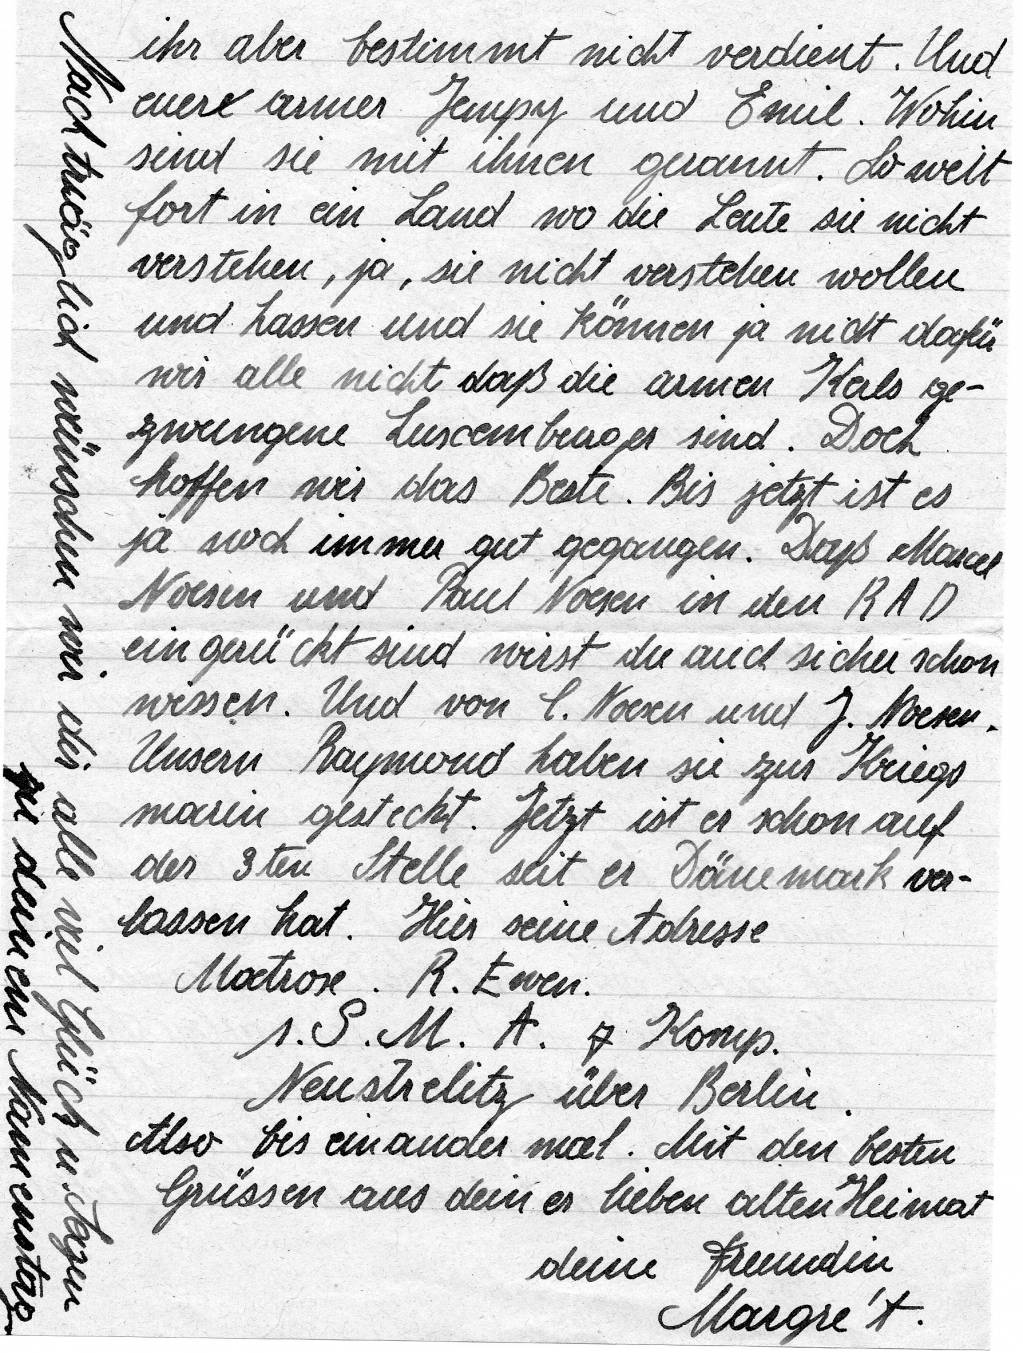 ihr aber bestimmt nicht verdient. Und
euere armer Jempy und Emil. Wohin
sind sie mit ihnen gerannt. So weit
fort in ein Land wo die Leute sie nicht
verstehen, ja, sie nicht verstehen wollen
und hassen und sie können ja nicht dafür
wir alle nicht daß die armen Kerls ge-
zwungene Luxemburger sind. Doch
hoffen wir das Beste. Bis jetzt ist es
ja noch immer gut gegangen. Daß Marcel
Noesen und Paul Noesen in den RAD
eingerückt sind wirst du auch sicher schon
wissen. Und von C. Noesen und J. Noesen.
Unsern Raymond haben sie zur Kriegs
marin gesteckt. Jetzt ist er schon auf
der 3ten Stelle seit er Dänemark ver-
lassen hat. Hier seine Adresse
Matrose. R. Ewen.
1. S. M. A. 7 Komp.
Neustrelitz über Berlin.
Also bis ein ander mal. Mit den besten
Grüssen aus deiner lieben alten Heimat
deine Freundin
Margre't.
Nachträglich wünschen wir dir alle viel Glück u. Segen
zu deinem Namenstag